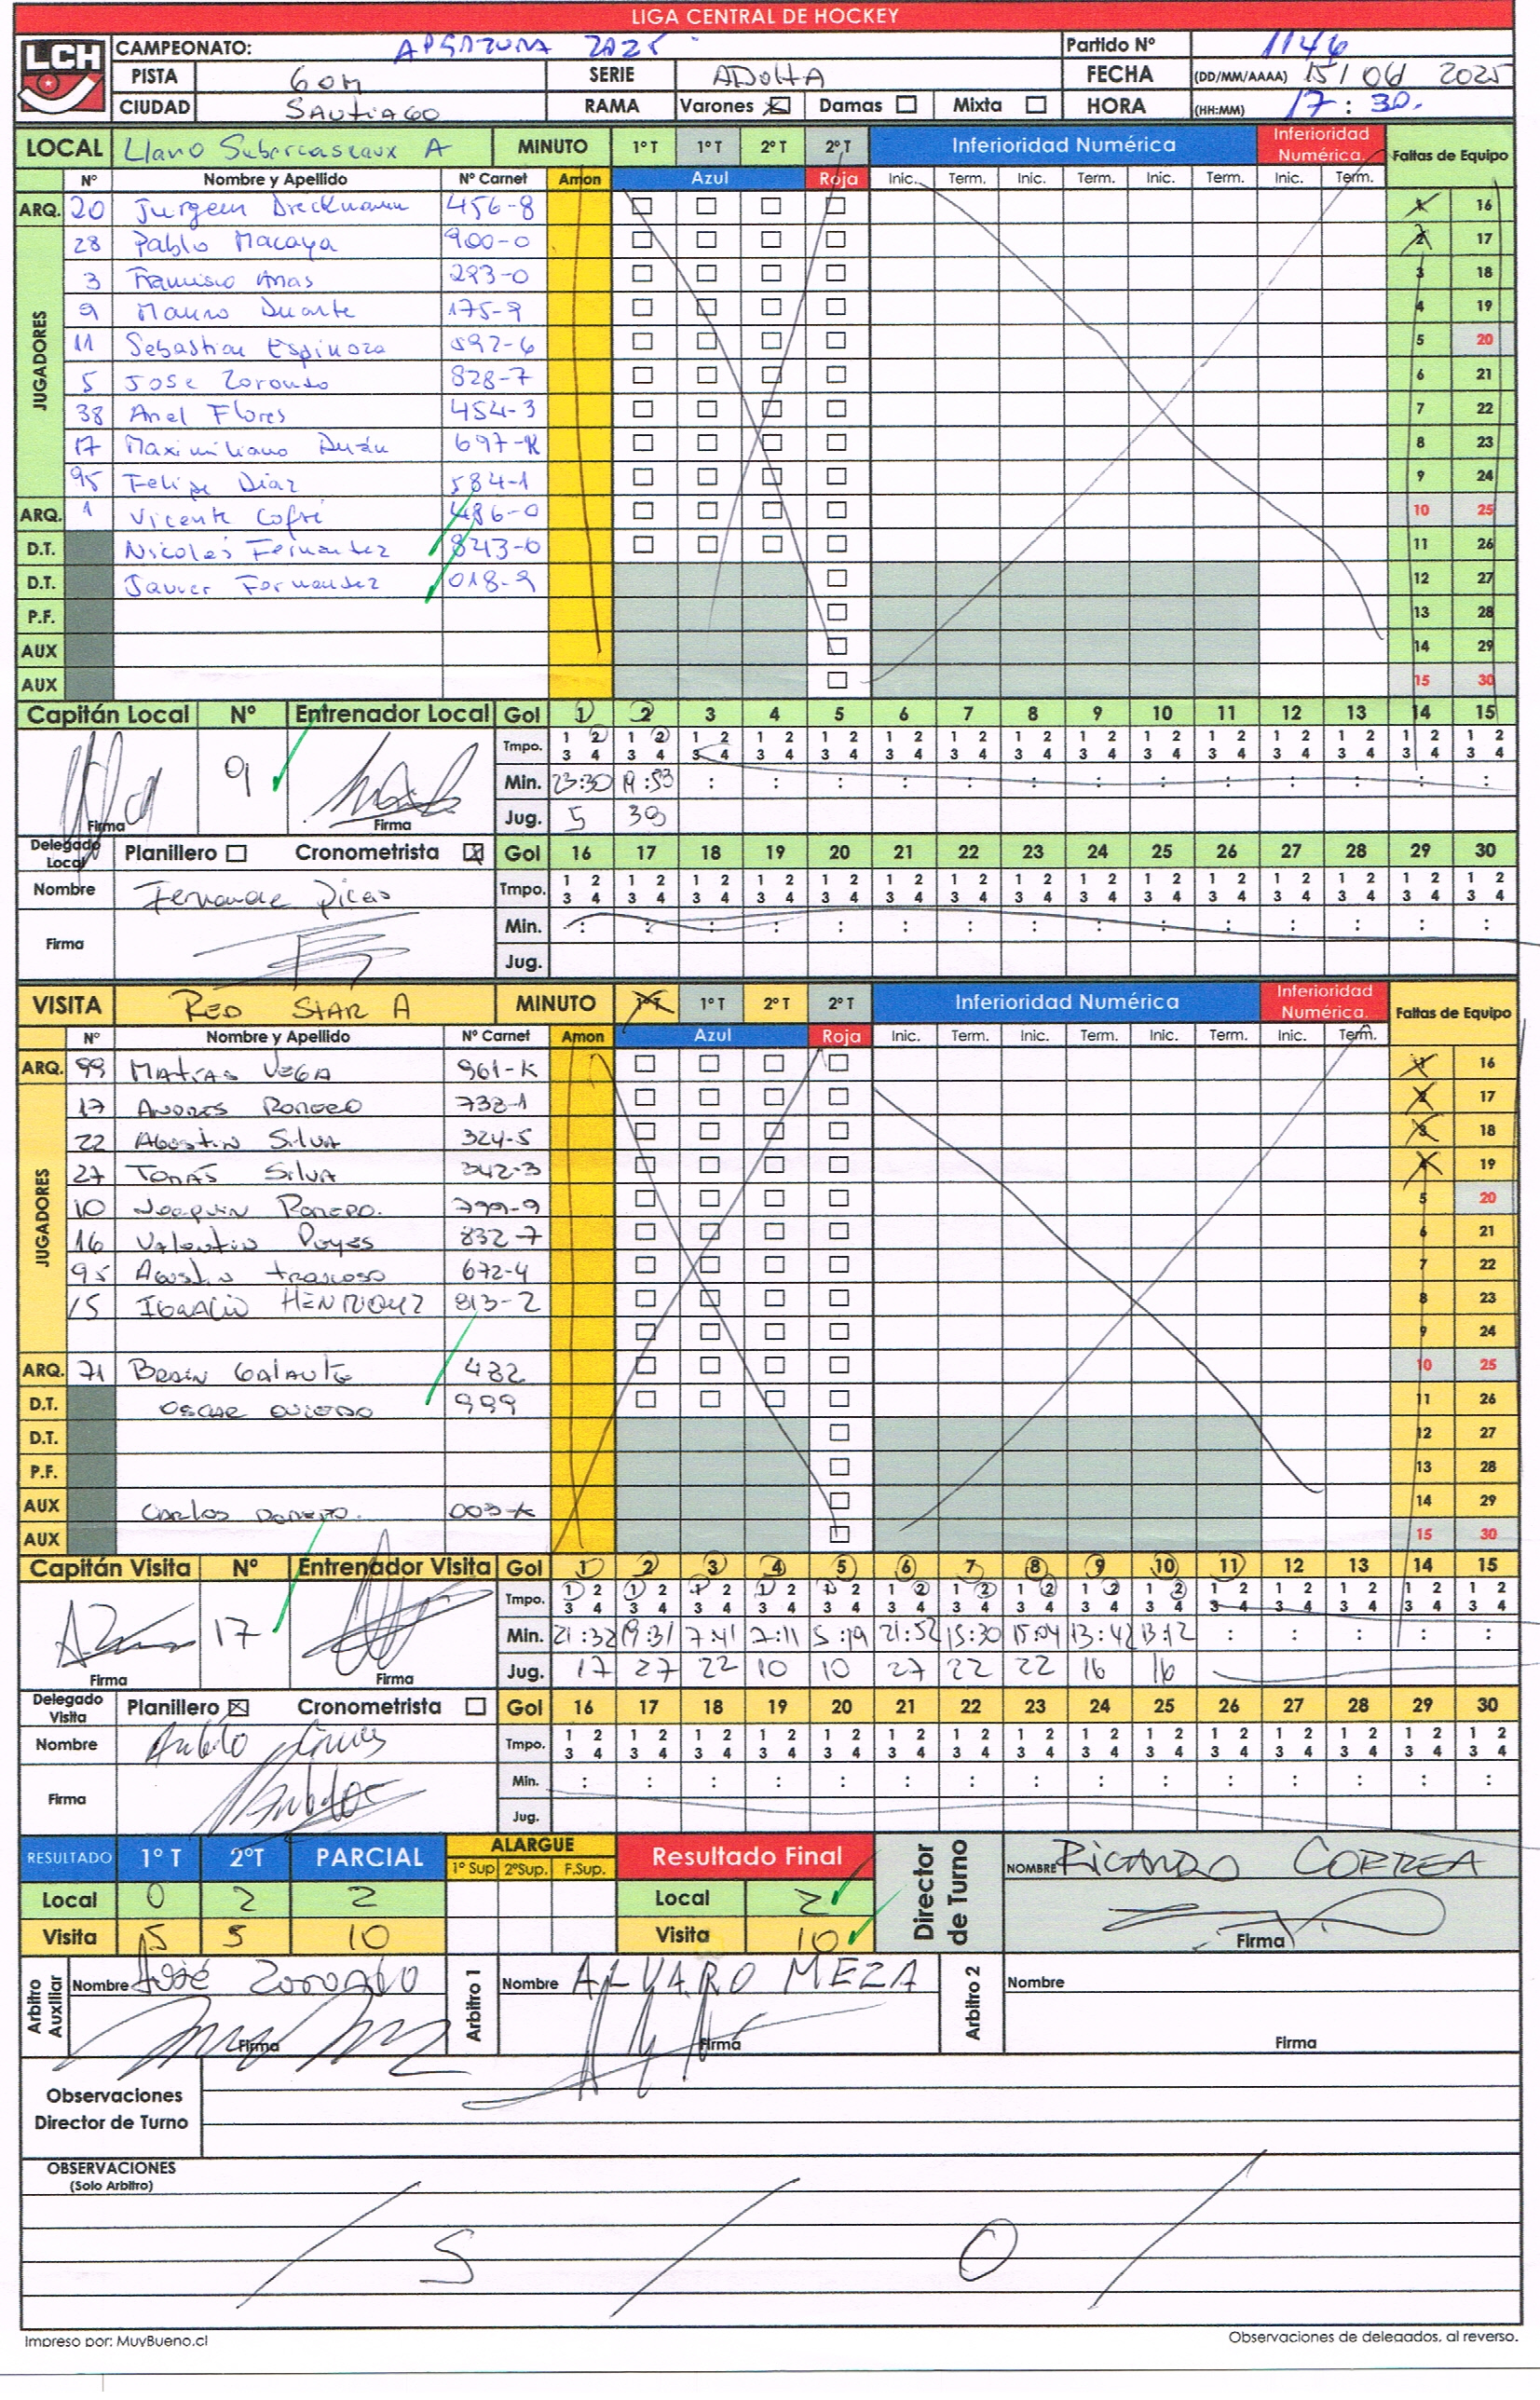 LIGA CENTRAL DE HOCKEY
LCH
CAMPEONATO: 2025 Partido Nº 1146
PISTA GOM SERIE ADULTA FECHA (DD/MM/AAAA) 15/06 2025
CIUDAD SANTIAGO RAMA Varones Damas Mixta HORA (HH:MM) 17:30.
LOCAL Llano Subercaseaux A MINUTO 1º T 1º T 2º T 2º T Inferioridad Numérica Inferioridad Numérica. Faltas de Equipo
Nº Nombre y Apellido Nº Carnet Amon Azul Roja Inic. Term. Inic. Term. Inic. Term. Inic. Term.
ARQ. 20 Jurgen 456-8 1 16
JUGADORES
28 Pablo Macaya 900-0 2 17
3 Francisco Arias 293-0 3 18
9 Mauro Duarte 175-9 4 19
11 Sebastian Espinoza 592-6 5 20
5 Jose Zorondo 828-7 6 21
38 Ariel Flores 454-3 7 22
17 Maximiliano Durán 697-K 8 23
95 Felipe Diaz 584-1 9 24
ARQ. 1 Vicente Cofré 486-0 10 25
D.T. Nicolás Fernandez 843-0 11 26
D.T. Javier Fernandez 018-9 12 27
P.F. 13 28
AUX 14 29
AUX 15 30
Capitán Local Nº Entrenador Local Gol 1 2 3 4 5 6 7 8 9 10 11 12 13 14 15
Tmpo. 1 2 3 4 1 2 3 4 1 2 3 4 1 2 3 4 1 2 3 4 1 2 3 4 1 2 3 4 1 2 3 4 1 2 3 4 1 2 3 4 1 2 3 4 1 2 3 4 1 2 3 4 1 2 3 4 1 2 3 4
9 Min. 23:30 19:53 : : : : : : : : : : : : :
Firma Firma Jug. 5 38
Delegado Local Planillero Cronometrista Gol 16 17 18 19 20 21 22 23 24 25 26 27 28 29 30
Nombre Tmpo. 1 2 3 4 1 2 3 4 1 2 3 4 1 2 3 4 1 2 3 4 1 2 3 4 1 2 3 4 1 2 3 4 1 2 3 4 1 2 3 4 1 2 3 4 1 2 3 4 1 2 3 4 1 2 3 4 1 2 3 4
Firma Min. : : : : : : : : : : : : : : :
Jug.
VISITA RED STAR A MINUTO 1º T 1º T 2º T 2º T Inferioridad Numérica Inferioridad Numérica. Faltas de Equipo
Nº Nombre y Apellido Nº Carnet Amon Azul Roja Inic. Term. Inic. Term. Inic. Term. Inic. Term.
ARQ. 99 MATÍAS VEGA 961-K 1 16
JUGADORES
17 ANDRES ROMERO 738-1 2 17
22 Agustin Silva 324-5 3 18
27 TOMÁS SILVA 342-3 4 19
10 Joaquin Romero. 799-9 5 20
16 Valentin Reyes 832-7 6 21
95 Agustin Troncoso 672-4 7 22
15 IGNACIO HENRIQUEZ 813-2 8 23
9 24
ARQ. 71 482 10 25
D.T. OSCAR OVIEDO 999 11 26
D.T. 12 27
P.F. 13 28
AUX CARLOS ROMERO. 003-K 14 29
AUX 15 30
Capitán Visita Nº Entrenador Visita Gol 1 2 3 4 5 6 7 8 9 10 11 12 13 14 15
Tmpo. 1 2 3 4 1 2 3 4 1 2 3 4 1 2 3 4 1 2 3 4 1 2 3 4 1 2 3 4 1 2 3 4 1 2 3 4 1 2 3 4 1 2 3 4 1 2 3 4 1 2 3 4 1 2 3 4 1 2 3 4
17 Min. 21:32 19:31 7:41 7:11 5:19 21:52 15:30 15:04 13:42 13:12 : : : : :
Firma Firma Jug. 17 27 22 10 10 27 22 22 16 16
Delegado Visita Planillero Cronometrista Gol 16 17 18 19 20 21 22 23 24 25 26 27 28 29 30
Nombre Tmpo. 1 2 3 4 1 2 3 4 1 2 3 4 1 2 3 4 1 2 3 4 1 2 3 4 1 2 3 4 1 2 3 4 1 2 3 4 1 2 3 4 1 2 3 4 1 2 3 4 1 2 3 4 1 2 3 4 1 2 3 4
Firma Min. : : : : : : : : : : : : : : :
Jug.
RESULTADO 1º T 2ºT PARCIAL ALARGUE 1º Sup 2ºSup. F.Sup. Resultado Final Director de Turno NOMBRE RICARDO CORREA
Local 0 2 2 Local 2
Visita 5 5 10 Visita 10 Firma
Arbitro Auxiliar Nombre José Zorondo Arbitro 1 Nombre ALVARO MEZA Arbitro 2 Nombre
Firma Firma Firma
Observaciones
Director de Turno
OBSERVACIONES
(Solo Arbitro)
/ S / O /
Impreso por: MuyBueno.cl Observaciones de delegados, al reverso.